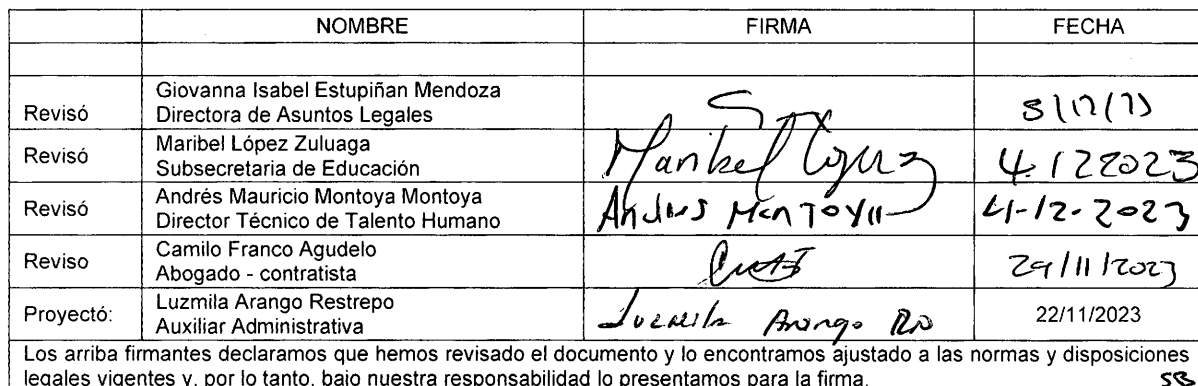 NOMBRE FIRMA FECHA
Giovanna Isabel Estupiñan Mendoza
Revisó Directora de Asuntos Legales
Maribel López Zuluaga
Revisó Subsecretaria de Educación Maribel López 4.122023
Andrés Mauricio Montoya Montoya
Revisó Director Técnico de Talento Humano Andres Montoya 4-12-2023
Camilo Franco Agudelo
Reviso Abogado - contratista 29/11/2023
Luzmila Arango Restrepo
Proyectó: Auxiliar Administrativa Luzmila Arango 22/11/2023
Los arriba firmantes declaramos que hemos revisado el documento y lo encontramos ajustado a las normas y disposiciones
legales vigentes y, por lo tanto, bajo nuestra responsabilidad lo presentamos para la firma. SB